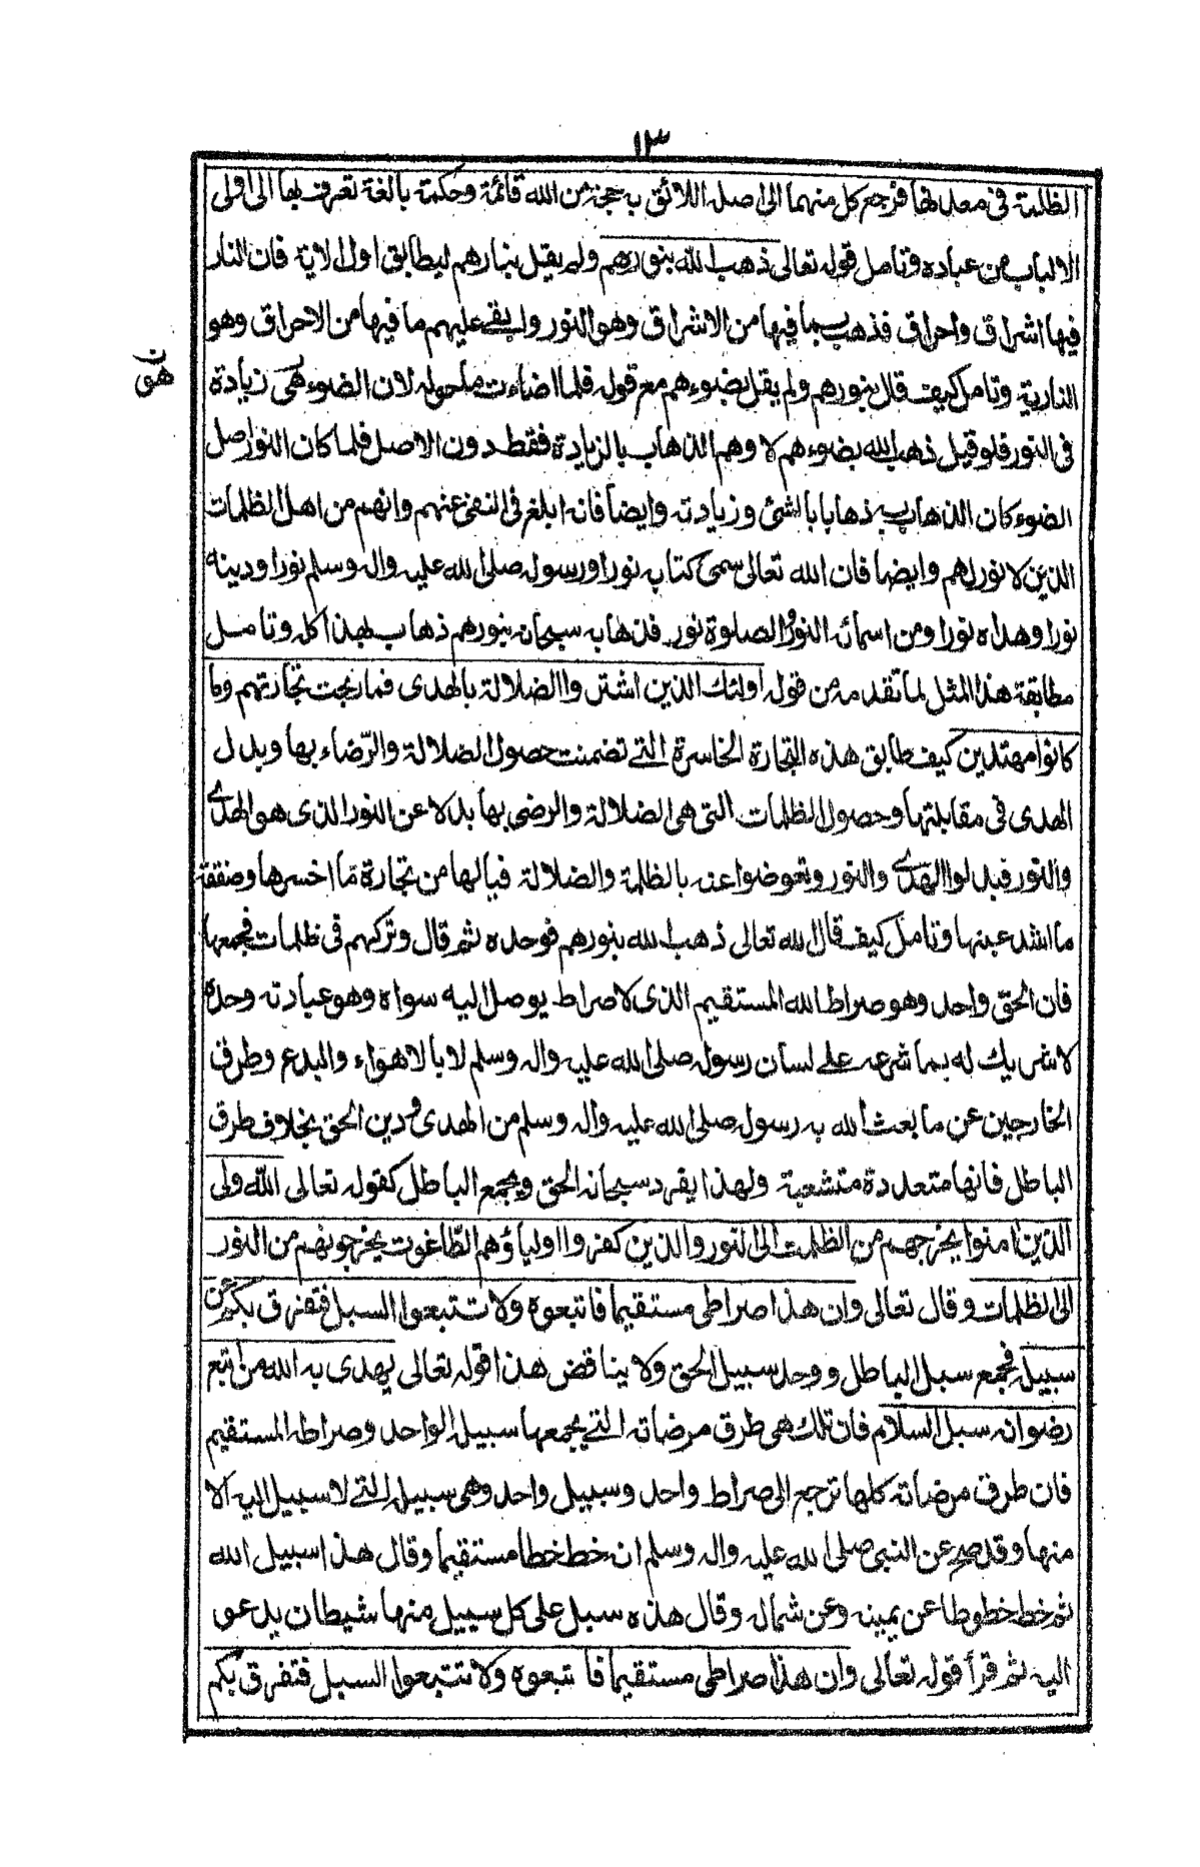 ١٣
الظلمة فى معدنها فرجع كل منهما الى اصله اللائق به حجة من الله قائمة وحكمة بالغة تعرف بها الى اولى
الالباب من عباده وتامل قوله تعالى ذهب الله بنورهم ولم يقل بنارهم ليطابق اول الاية فان النار
فيها اشراق واحراق فذهب بما فيها من الاشراق وهو النور وابقى عليهم ما فيها من الاحراق وهو
النارية وتامل كيف قال بنورهم ولم يقل بضوءهم مع قوله فلما اضاءت ماحوله لان الضوء هى زيادة
هو ن
فى النور فلو قيل ذهب الله بضوءهم لا وهم الذهاب بالزيادة فقط دون الاصل فلما كان النور اصل
الضوء كان الذهاب به ذهابا بالشئ وزيادته وايضا فانه ابلغ فى النفى عنهم وانهم من اهل الظلمات
الذين لا نور لهم وايضا فان الله تعالى سمى كتابه نورا ورسوله صلى الله عليه واله وسلم نورا ودينه
نورا وهداه نورا ومن اسمائه النور والصلوة نور فذهابه سبحانه بنورهم ذهاب بهذا كله وتامل
مطابقة هذا المثل لما تقدمه من قوله اولئك الذين اشتروا الضلالة بالهدى فما ربحت تجارتهم وما
كانوا مهتدين كيف طابق هذه التجارة الخاسرة التى تضمنت حصول الضلالة والرّضاء بها وبدل
الهدى فى مقابلتها وحصول الظلمات التى هى الضلالة والرضى بها بدلا عن النور الذى هو الهدى
والنور فبدلوا الهدى والنور وتعوضوا عنه بالظلمة والضلالة فيالها من تجارة مّا اخسرها وصفقة
ما اشد عبنها وتامل كيف قال الله تعالى ذهب الله بنورهم فوحده ثم قال وتركهم فى ظلمات فجمعها
فان الحق واحد وهو صراط الله المستقيم الذى لا صراط يوصل اليه سواه وهو عبادته وحده
لا شريك له بما شرعه على لسان رسوله صلى الله عليه واله وسلم لا بالاهواء والبدع وطرق
الخارجين عن ما بعث الله به رسوله صلى الله عليه واله وسلم من الهدى ودين الحق بخلاف طرق
الباطل فانها متعددة متشعبة ولهذا يفرد سبحانه الحق ويجمع الباطل كقوله تعالى الله ولى
الذين امنوا يخرجهم من الظلمت الى النور والذين كفروا اولياؤهم الطّاغوت يخرجونهم من النور
الى الظلمات وقال تعالى وان هذا صراطى مستقيما فاتبعوه ولا تتبعوا السبل فتفرق بكم عن
سبيله فجمع سبل الباطل ووحد سبيل الحق ولا يناقض هذا قوله تعالى يهدى به الله من اتبع
رضوانه سبل السلام فان تلك هى طرق مرضاته التى يجمعها سبيله الواحد وصراطه المستقيم
فان طرق مرضاته كلها ترجع الى صراط واحد وسبيل واحد وهى سبيله التى لا سبيل اليه الا
منها وقد صح عن النبى صلى الله عليه واله وسلم ان خط خطا مستقيما وقال هذا سبيل الله
ثم خط خطوطا عن يمينه وعن شماله وقال هذه سبل على كل سبيل منها شيطان يدعو
اليه ثم قرأ قوله تعالى وان هذا صراطى مستقيما فاتبعوه ولا تتبعوا السبل فتفرق بكم